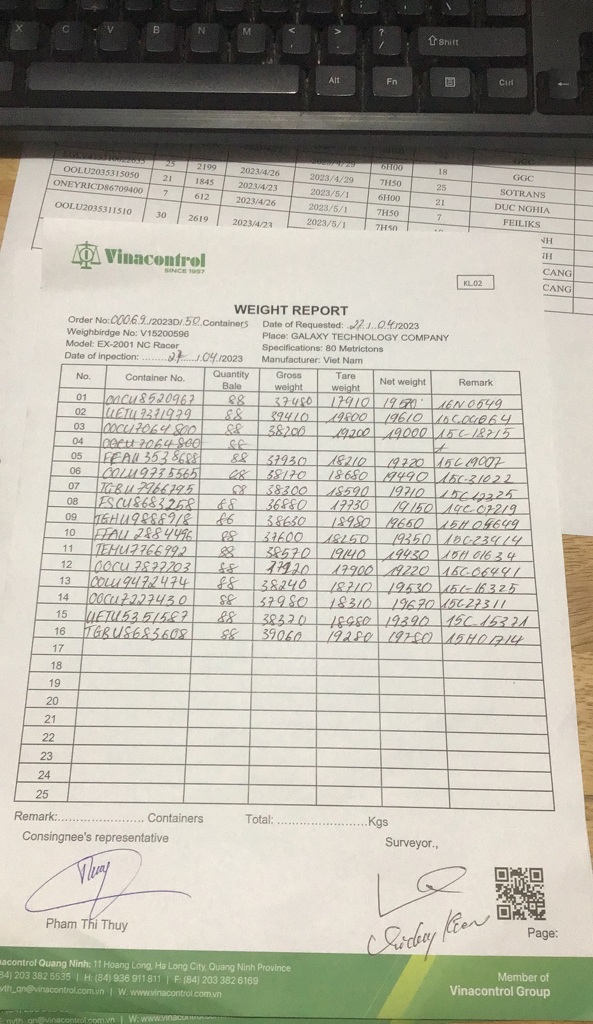 X C V B N M < > ? / ⇧Shift
Alt Fn Ctrl
25 2199 2023/4/26 6H00 18 GGC
OOLU2035315050 21 1845 2023/4/23 2023/4/29 7H50 25 SOTRANS
ONEYRICD86709400 7 612 2023/4/26 2023/5/1 6H00 21 DUC NGHIA
OOLU2035311510 30 2619 2023/4/23 2023/5/1 7H50 7 FEILIKS
2023/5/1 7H50
CANG
CANG
Vinacontrol
SINCE 1957
KL.02
WEIGHT REPORT
Order No: 00069 /2023D/ 50 Containers Date of Requested: 22 / 04/2023
Weighbirdge No: V15200596 Place: GALAXY TECHNOLOGY COMPANY
Model: EX-2001 NC Racer Specifications: 80 Metrictons
Date of inpection: 27 / 04/2023 Manufacturer: Viet Nam
No. Container No. Quantity Bale Gross weight Tare weight Net weight Remark
01 OOCU8520967 88 37480 17910
02 UETU7371979 88 39410 19800 19610
03 OOCU7064800 88 38200 19200 19000 15C-18715
04 OOCU7064800 88
05 88 37930 18210 19720 15C19007
06 OOLU9735565 88 38170 18680 19490 15C-31022
07 TGBU7966795 88 38300 18590 19710
08 FSCU8683258 88 36880 17730 19150 14C-07219
09 TGHU9888918 86 38630 18980 19650 15H-05649
10 FFAU2884496 88 37600 18250 19350 15C-23414
11 TEMU7766992 88 38570 19140 19430 15H 01634
12 OOCU7877203 88 17900 19220 15C-06441
13 OOLU9472474 88 38240 18710 19530 15C-16325
14 OOCU7227430 88 37980 18310 19670 15C27311
15 UETU5351587 88 19390
16 TGBU8683608 88 39060 19280 19780 15H01714
17
18
19
20
21
22
23
24
25
Remark:........................ Containers Total: .........................Kgs
Consingnee's representative Surveyor.,
Thuy
Pham Thi Thuy
Page:
nacontrol Quang Ninh: 11 Hoang Long, Ha Long City, Quang Ninh Province
84) 203 382 5535 | H: (84) 936 911 811 | F: (84) 203 382 6169
nyth_qn@vinacontrol.com.vn | W. www.vinacontrol.com.vn
Member of
Vinacontrol Group